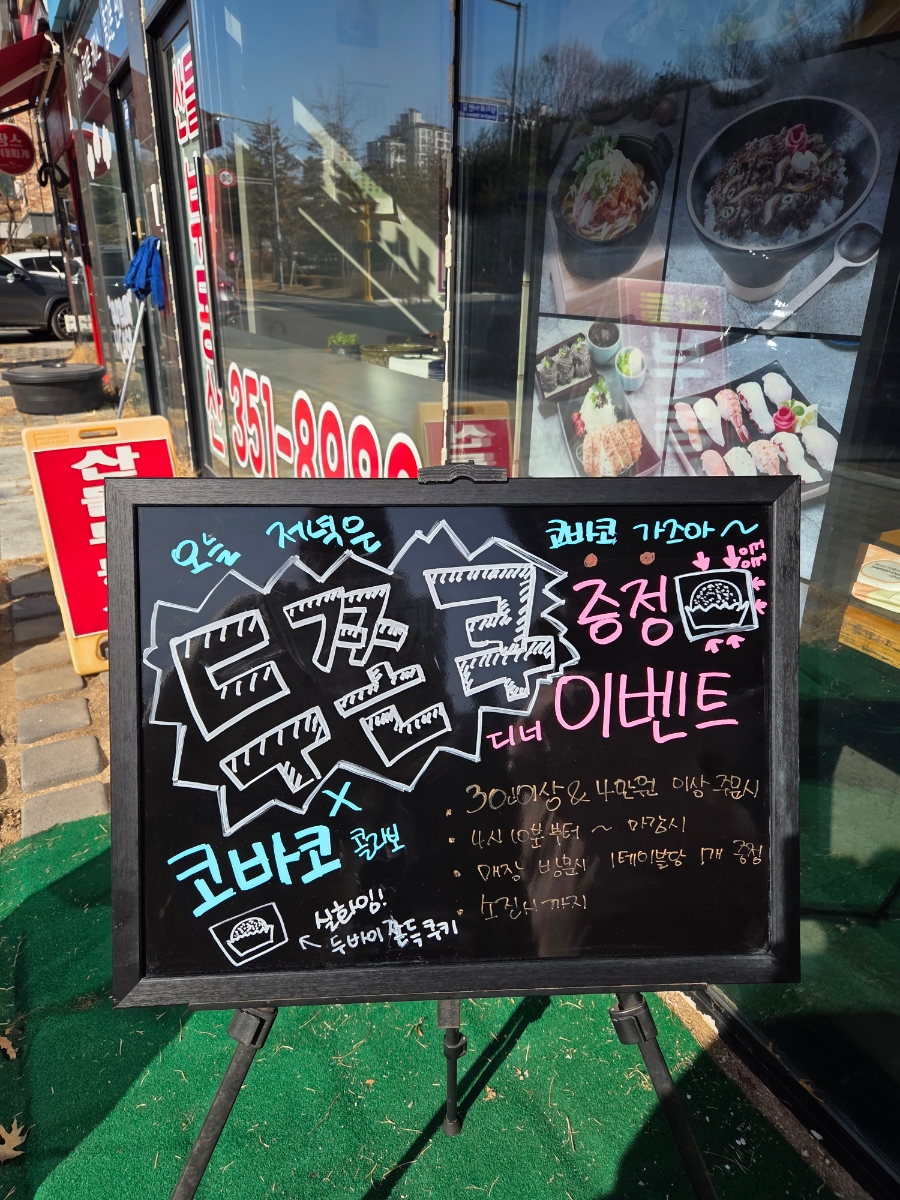 오늘 저녁은
코바코 가조아~
두쫀쿠
증정
디너 이벤트
x
코바코 콜라보
· & 4만원 이상 주문시
· 4시 10분부터 ~ 마감시
· 매장 방문시 1테이블당 1개 증정
· 소진시 까지
실화임!
두바이쫀득쿠키
351-
산들